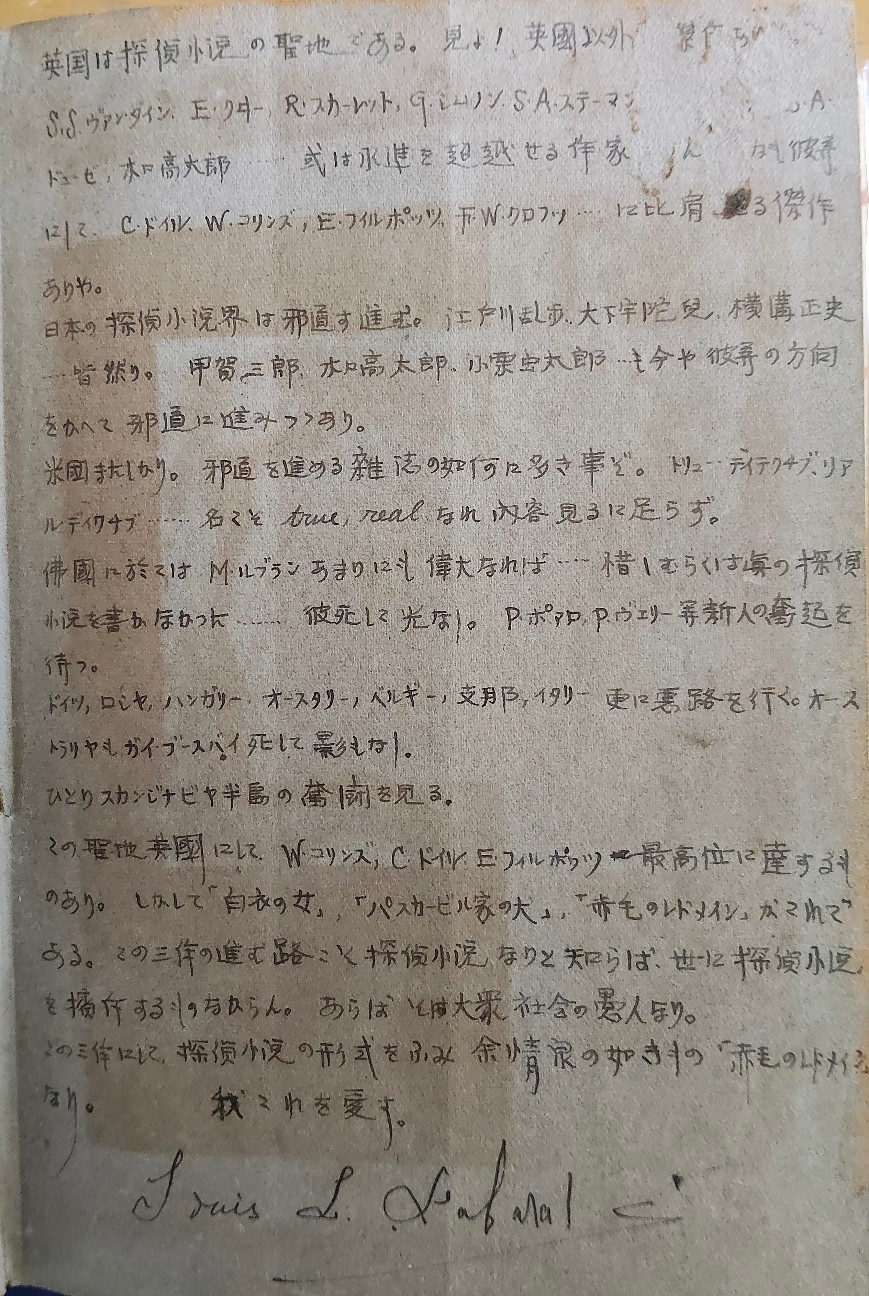 英国は探偵小説の聖地である。見よ！英國以外
S.S.ヴァンダイン、E.クヰー、R.スカーレット、G.シムノン、S.A.ステーマン S.A.
ドューゼ、木々高太郎……或は水準を超越せる作家 彼等
にして、C.ドイル、W.コリンズ、E.フィルポッツ、F.W.クロフツ…に比肩 る傑作
ありや。
日本の探偵小説界は邪道す進む。江戸川乱歩、大下宇陀兒、横溝正史
…皆然り。甲賀三郎、木々高太郎、小栗虫太郎…も今や彼等の方向
をかへて邪道に進みつつあり。
米國またしかり。邪道を進める雑誌の如何に多き事ぞ。トリューディテクチブ、リア
ルディクチブ……名こそ true, real なれ内容見るに足らず。
佛國に於ては M.ルブランあまりにも偉大なれば……惜しむらくは眞の探偵
小説を書かなかった……彼死して光なし。P.ボアロ、P.ヴェリー等新人の奮起を
待つ。
ドイツ、ロシヤ、ハンガリー、オースタリー、ベルギー、支那、イタリー更に悪路を行く。オース
トラリヤもガイ・ブースバイ死して影もなし。
ひとりスカンジナビヤ半島の奮闘を見る。
この聖地英國にして、W.コリンズ、C.ドイル、E.フィルポッツ最高位に達するも
のあり。しかして「白衣の女」、「バスカービル家の犬」、「赤毛のレドメイン」がこれで
ある。この三作の進む路こそ探偵小説なりと知らば、世に探偵小説
を擯斥するものなからん。あらば 大衆社会の愚人なり。
この三作にして、探偵小説の形式をふみ 余情 の如きもの「赤毛のレドメイン」
なり。 我これを愛す。
Louis L.